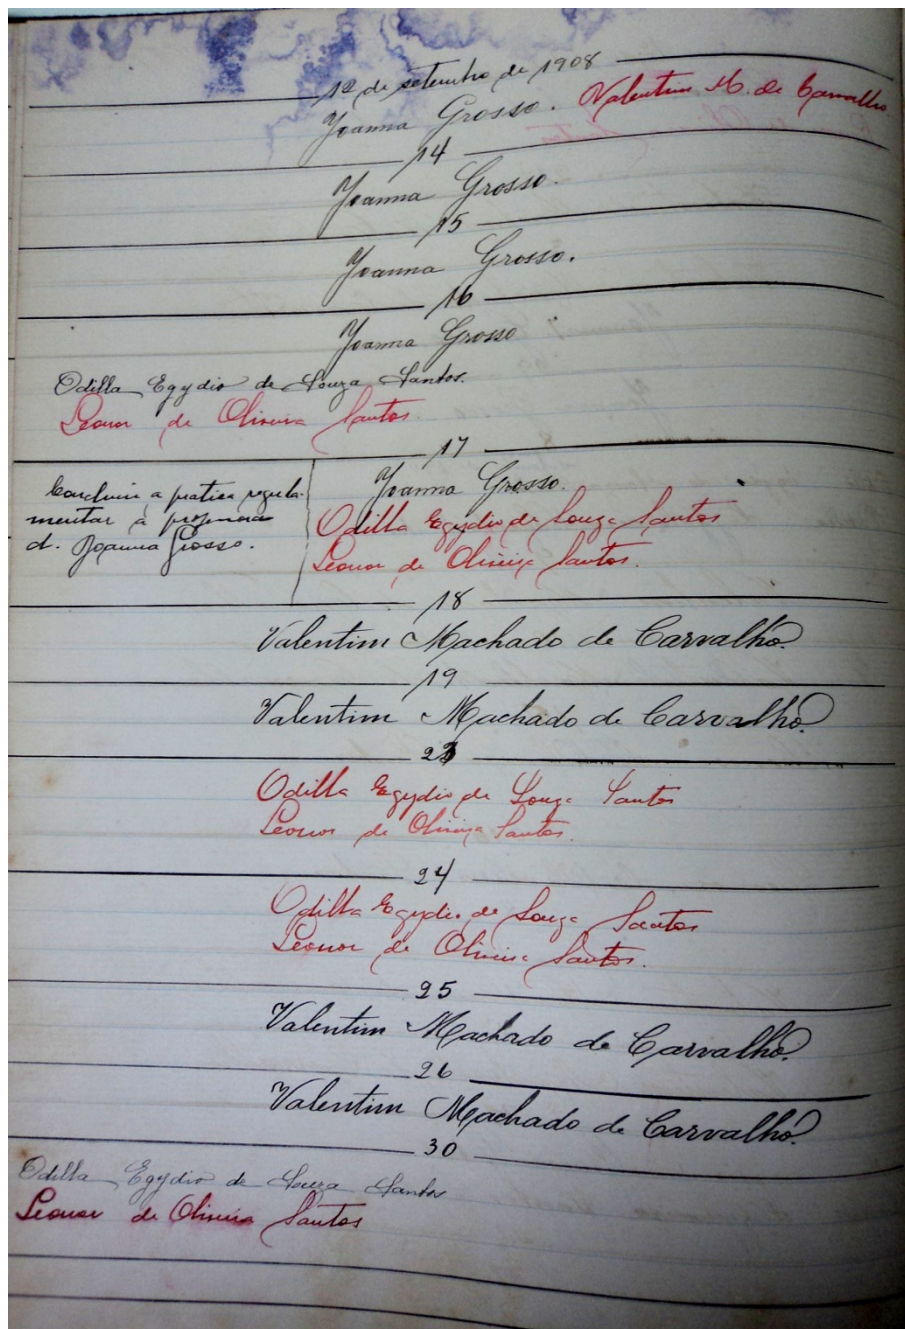 12 de setembro de 1908
Joanna Grosso. Valentim M. de Carvalho
14
Joanna Grosso.
15
Joanna Grosso.
16
Joanna Grosso
Odilla Egydio de Souza Santos.
Leonor de Oliveira Santos.
17
Concluiu a pratica regula-
mentar a professora
d. Joanna Grosso.
Joanna Grosso.
Odilla Egydio de Souza Santos
Leonor de Oliveira Santos.
18
Valentim Machado de Carvalho.
19
Valentim Machado de Carvalho.
23
Odilla Egydio de Souza Santos
Leonor de Oliveira Santos.
24
Odilla Egydio de Souza Santos
Leonor de Oliveira Santos.
25
Valentim Machado de Carvalho.
26
Valentim Machado de Carvalho.
30
Odilla Egydio de Souza Santos
Leonor de Oliveira Santos